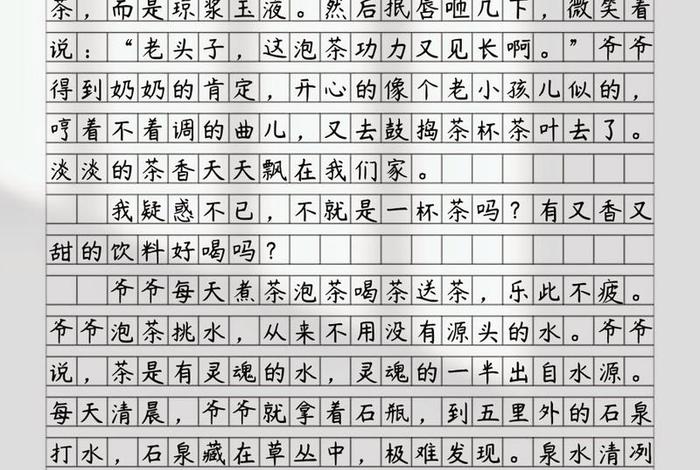 茶，而是琼浆玉液。然后抿唇咂几下，微笑着
说：“老头子，这泡茶功力又见长啊。”爷爷
得到奶奶的肯定，开心的像个老小孩儿似的，
哼着不着调的曲儿，又去鼓捣茶杯茶叶去了。
淡淡的茶香天天飘在我们家。
我疑惑不已，不就是一杯茶吗？有又香又
甜的饮料好喝吗？
爷爷每天煮茶泡茶喝茶送茶，乐此不疲。
爷爷泡茶挑水，从来不用没有源头的水。爷爷
说，茶是有灵魂的水，灵魂的一半出自水源。
每天清晨，爷爷就拿着石瓶，到五里外的石泉
打水，石泉藏在草丛中，极难发现。泉水清冽